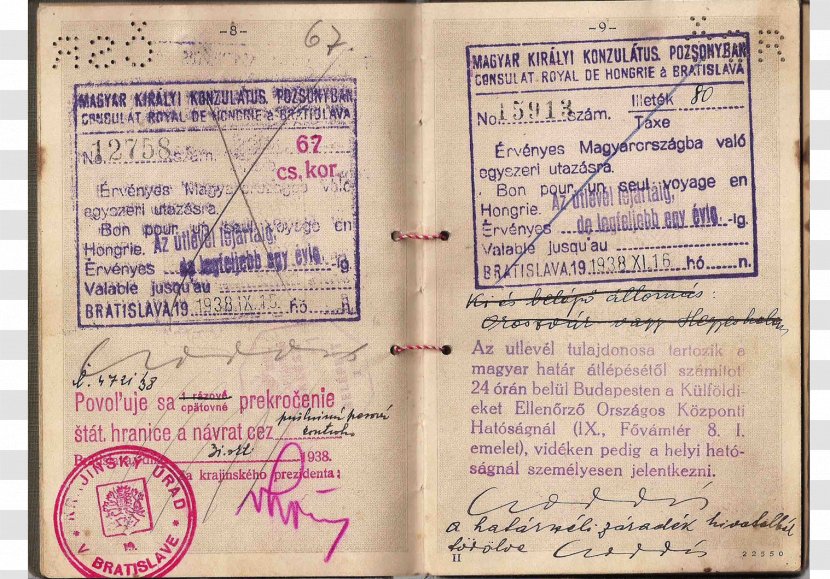 -8-
67.
MAGYAR KIRÁLYI KONZULÁTUS. POZSONYBAN
CONSULAT ROYAL DE HONGRIE à BRATISLAVA
No 12758 szám.
67
cs. kor.
Érvényes Magyarországba való
egyszeri utazásra.
Bon pour un seul voyage en
Hongrie. Az útlevél lejártáig,
Érvényes de legfeljebb egy évig -ig
Valable jusqu'au
BRATISLAVA, 19 1938 IX. 15. hó n.
Č. 4721/38
Povoľuje sa 1 rázové prekročenie
opätovné
štát. hranice a návrat cez
1938.
za krajinského prezidenta:
KRAJINSKÝ ÚRAD
19.
V BRATISLAVE
-9-
MAGYAR KIRÁLYI KONZULÁTUS. POZSONYBAN
CONSULAT ROYAL DE HONGRIE à BRATISLAVA
No. 15913 szám. Illeték 80
Taxe
Érvényes Magyarországba való
egyszeri utazásra.
Bon pour un seul voyage en
Hongrie. Az útlevél lejártáig,
Érvényes de legfeljebb egy évig -ig.
Valable jusqu'au
BRATISLAVA, 19 1938 XI. 16 hó n.
Ki és belépő állomás:
Oroszvár vagy Hegyeshalom
Az utlevél tulajdonosa tartozik a
magyar határ átlépésétől számitot
24 órán belül Budapesten a Külföldi-
eket Ellenőrző Országos Központi
Hatóságnál (IX., Fővámtér 8. I.
emelet), vidéken pedig a helyi ható-
ságnál személyesen jelentkezni.
a határszéli záradék hivatalból
törölve
II
22550